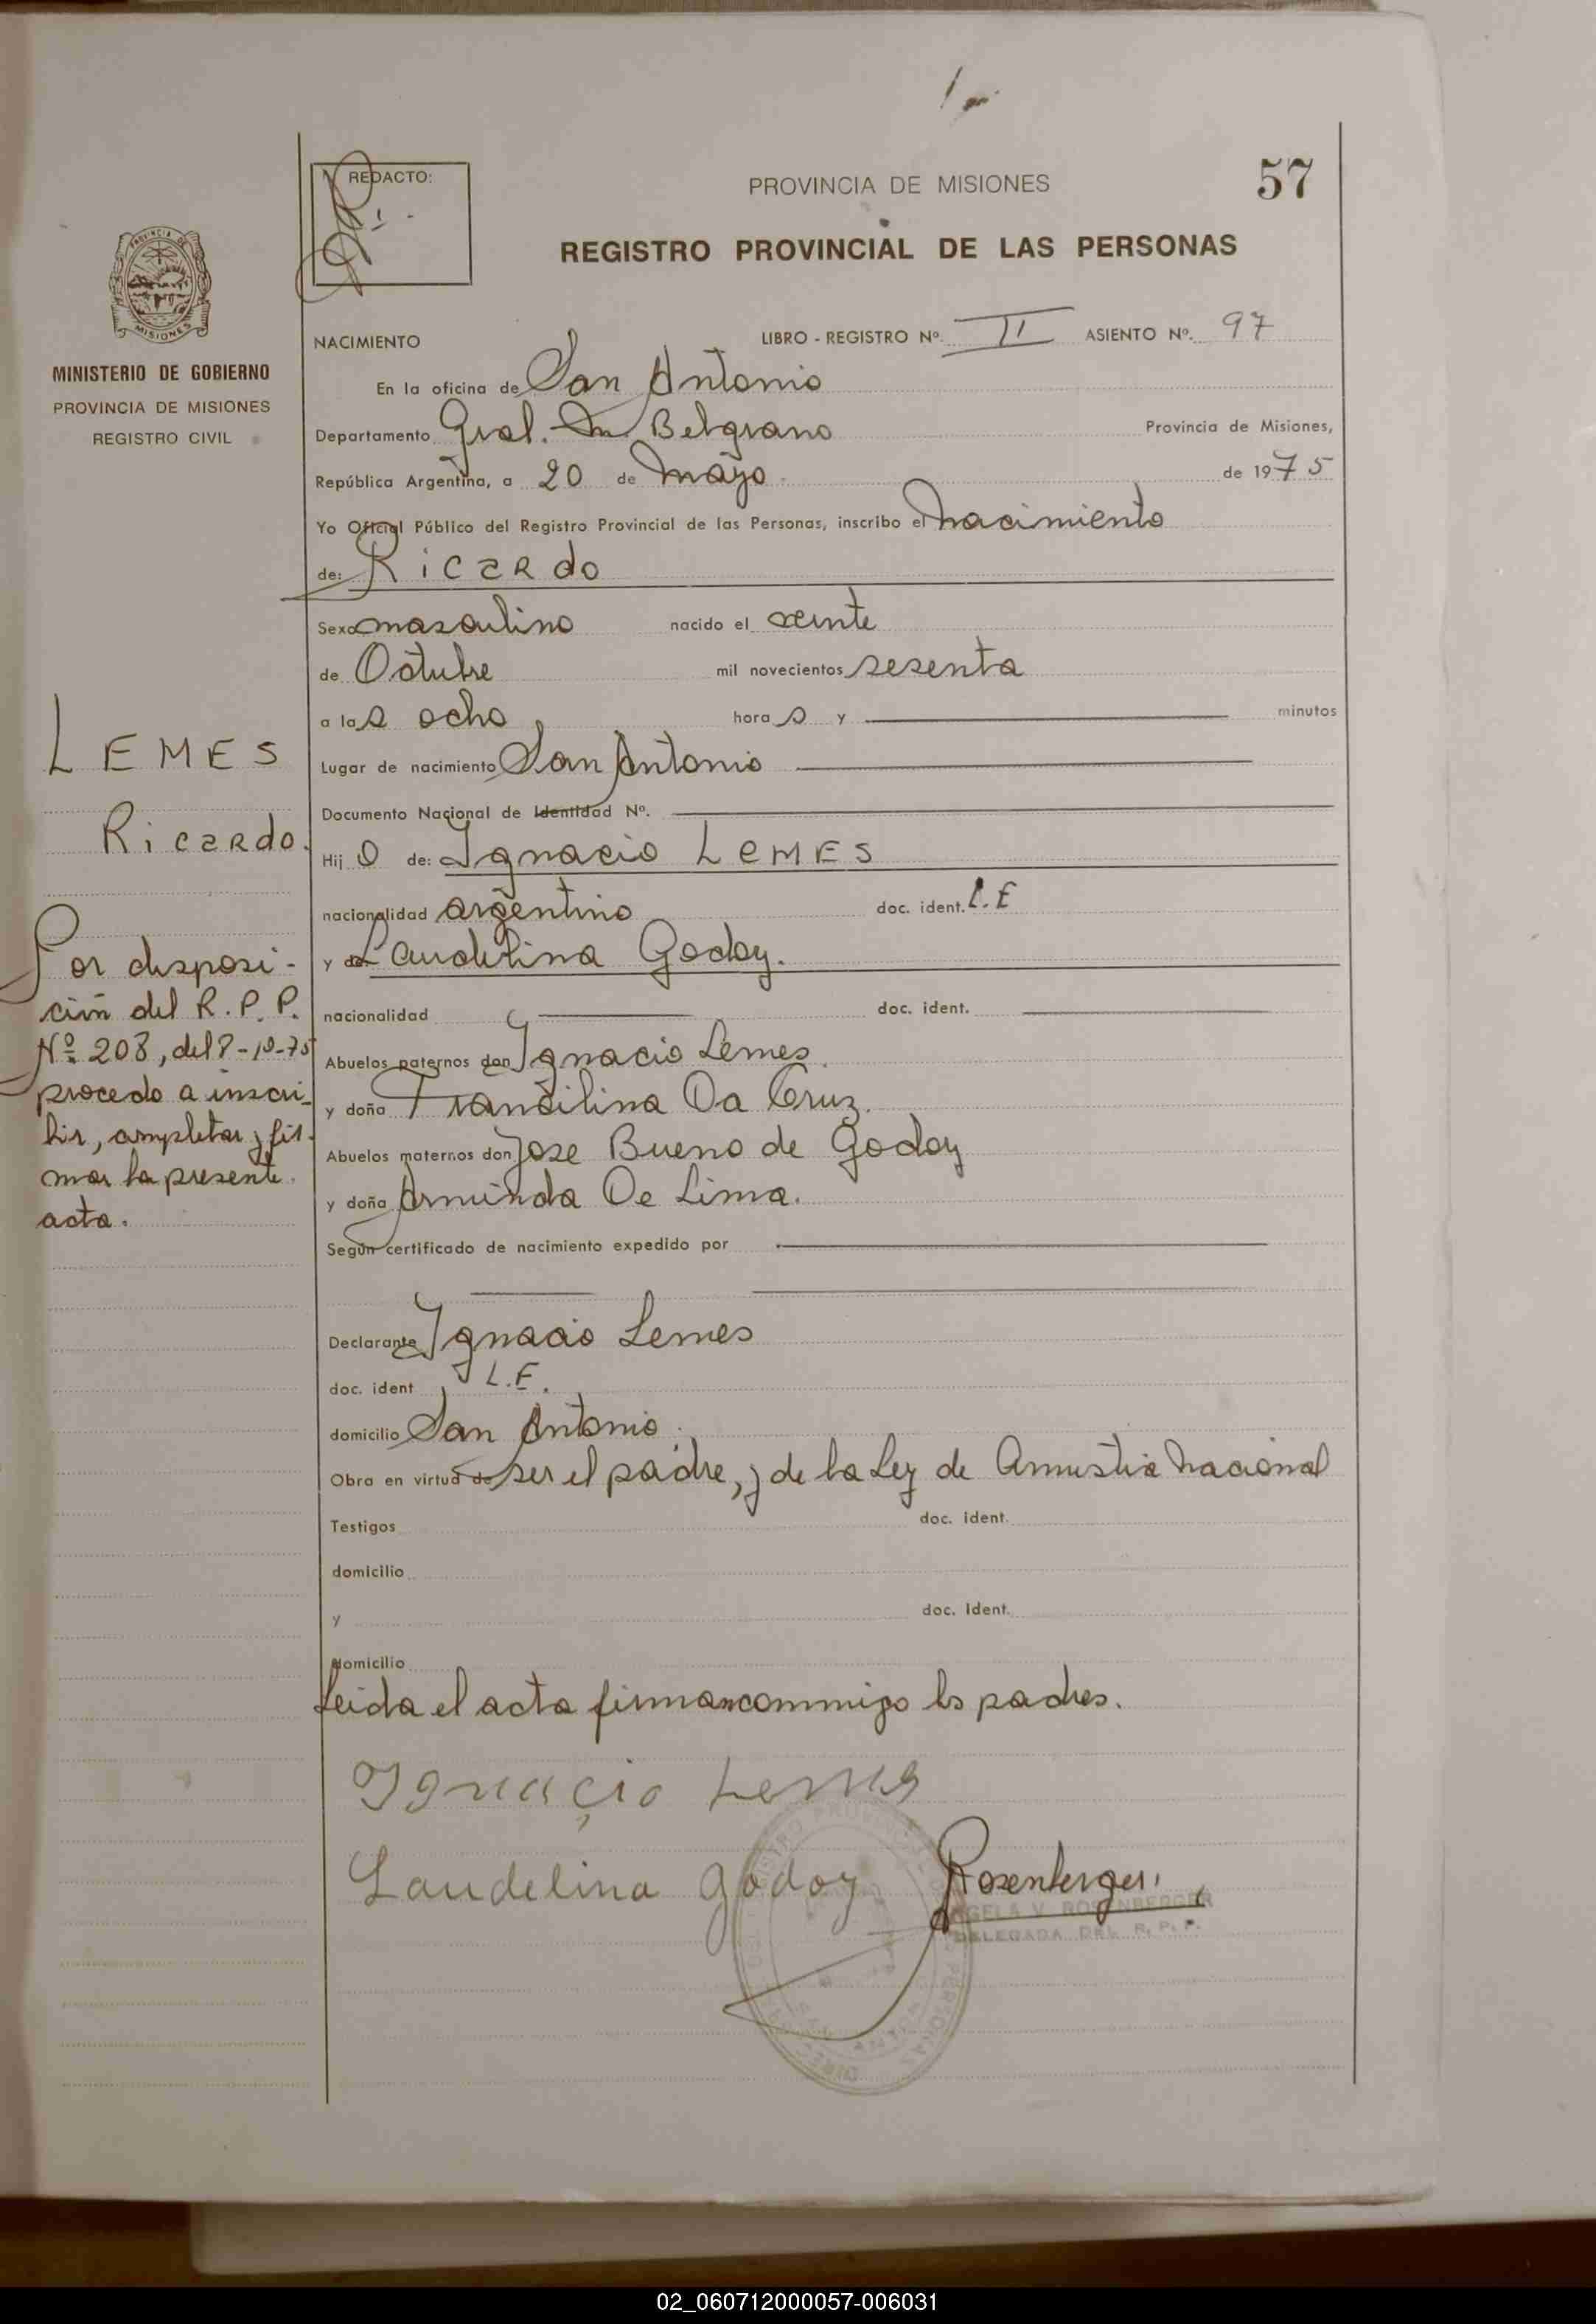 57
REDACTO:
PROVINCIA DE MISIONES
REGISTRO PROVINCIAL DE LAS PERSONAS
PROVINCIA DE
MISIONES
MINISTERIO DE GOBIERNO
PROVINCIA DE MISIONES
REGISTRO CIVIL
NACIMIENTO LIBRO - REGISTRO Nº. II ASIENTO Nº. 97
En la oficina de San Antonio
Departamento Gral. M. Belgrano Provincia de Misiones,
República Argentina, a 20 de Mayo de 1975
Yo Oficial Público del Registro Provincial de las Personas, inscribo el nacimiento
de: Ricardo
Sexo masculino nacido el veinte
de Octubre mil novecientos sesenta
a las ocho horas y minutos
Lugar de nacimiento San Antonio
Documento Nacional de Identidad Nº.
Hijo de: Ignacio LEMES
nacionalidad argentino doc. ident. L.E
y de Laudelina Godoy.
nacionalidad doc. ident.
Abuelos paternos don Ignacio Lemes
y doña Francilina Da Cruz.
Abuelos maternos don Jose Bueno de Godoy
y doña Arminda De Lima.
Según certificado de nacimiento expedido por
Declarante Ignacio Lemes
doc. ident L.E.
domicilio San Antonio.
Obra en virtud de ser el padre, y de la Ley de Amnistia Nacional
Testigos doc. ident.
domicilio
y doc. ident.
domicilio
Leida el acta firman conmigo los padres.
Ignacio Lemes
Laudelina Godoy
Rosenberger
ANGELA V. ROSENBERGER
DELEGADA DEL R. P. P.
LEMES
Ricardo.
Por disposi-
ción del R.P.P.
Nº 208, del 8-10-75
procedo a inscri-
bir, completar y fir-
mar la presente
acta.
02_060712000057-006031